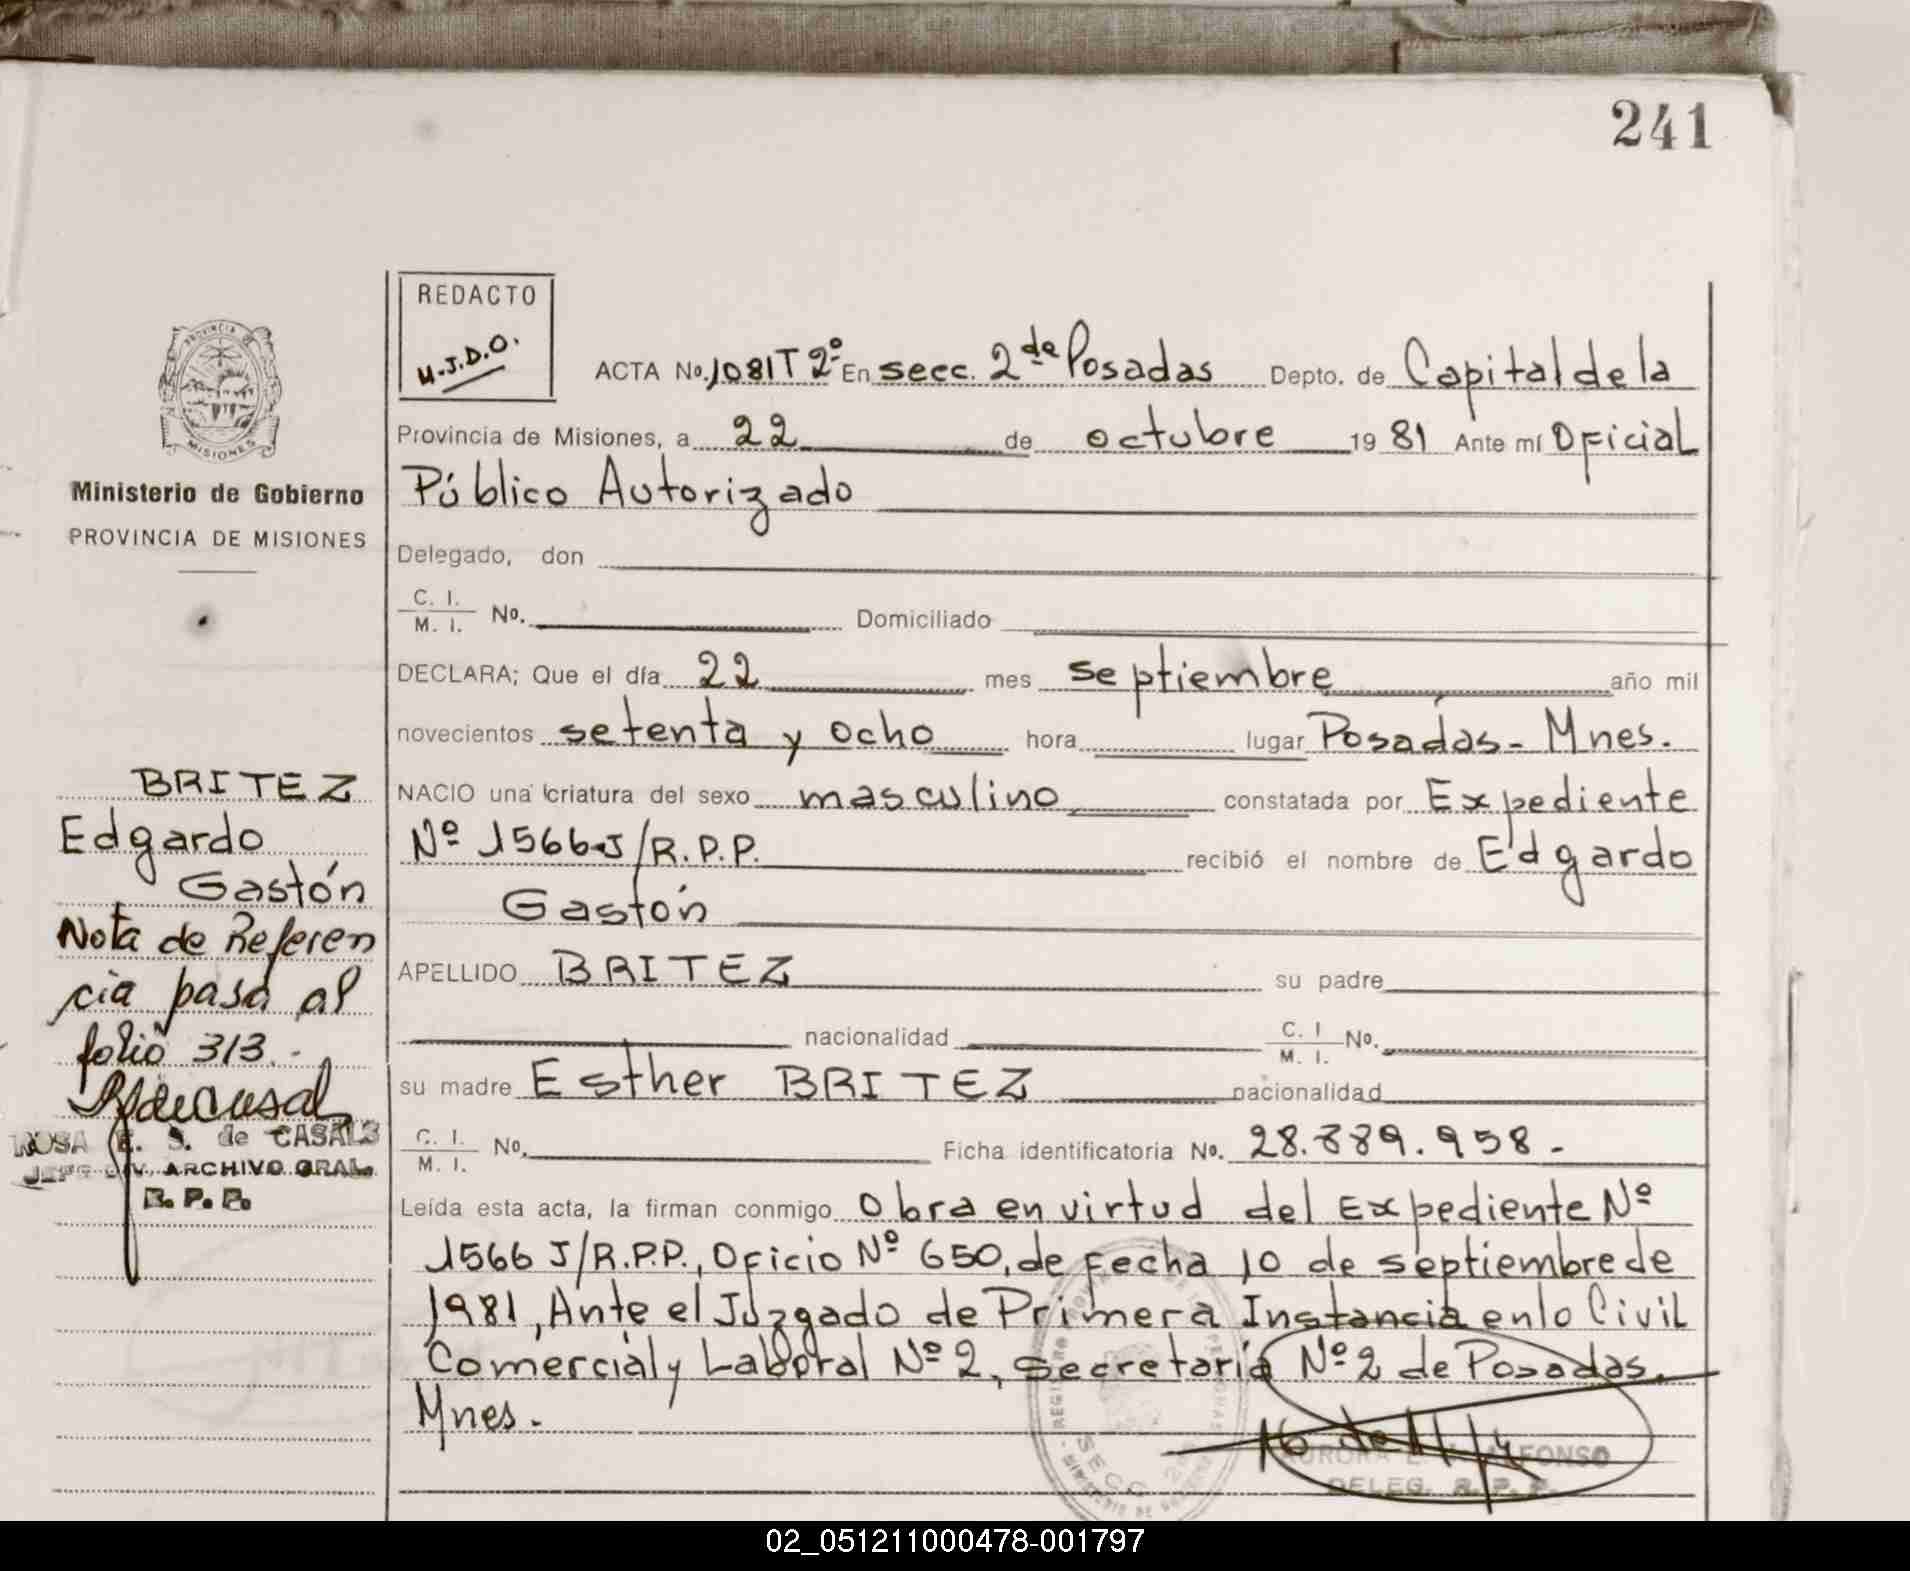 241
REDACTO
U.J.D.O.
ACTA No. 1081 T 2º En secc. 2da Posadas Depto. de Capital de la
Provincia de Misiones, a 22 de octubre 19 81 Ante mí Oficial
Público Autorizado
Delegado, don
C. I.
M. I. No. Domiciliado
DECLARA; Que el día 22 mes septiembre año mil
novecientos setenta y ocho hora lugar Posadas - Mnes.
NACIO una criatura del sexo masculino constatada por Expediente
Nº 1566-J/R.P.P. recibió el nombre de Edgardo
Gastón
APELLIDO BRITEZ su padre
nacionalidad C. I. M. I. No.
su madre Esther BRITEZ nacionalidad
C. I.
M. I. No. Ficha identificatoria No. 28.889.958.-
Leída esta acta, la firman conmigo Obra en virtud del Expediente Nº
1566 J/R.P.P., Oficio Nº 650, de fecha 10 de septiembre de
1981, Ante el Juzgado de Primera Instancia en lo Civil
Comercial y Laboral Nº 2, Secretaría Nº 2 de Posadas.
Mnes.
PROVINCIA
MISIONES
Ministerio de Gobierno
PROVINCIA DE MISIONES
BRITEZ
Edgardo
Gastón
Nota de Referen
cia pasa al
folio 313.-
ROSA E. S. de CASALS
JEFE DIV. ARCHIVO GRAL.
R. P. P.
SECC. 2
AURORA ALFONSO
DELEG. R. P. P.
02_051211000478-001797